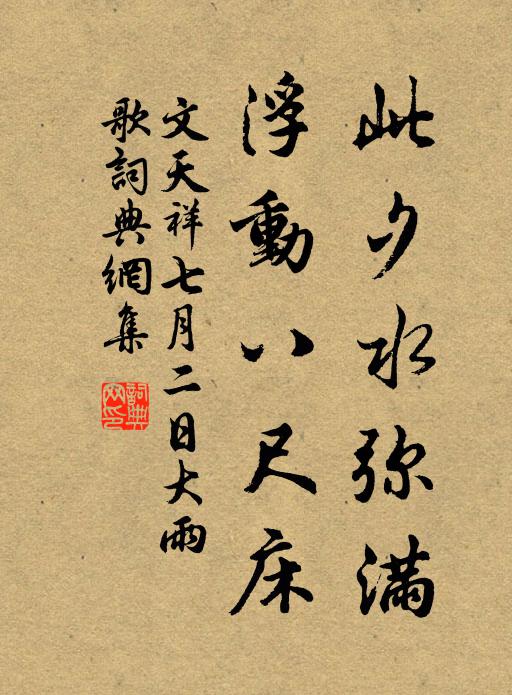 此夕水弥滿
浮動八尺床
文天祥七月二日大雨
歌詞典網集
詞典网印